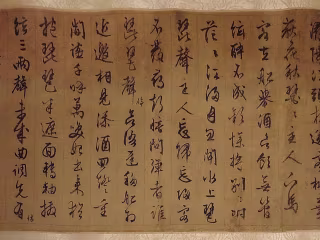 潯陽江頭夜送客楓
荻花秋瑟瑟主人下馬
客在船舉酒欲飲無管
絃醉不成歡慘將別別時
茫茫江浸月忽聞水上琵
琶聲主人忘歸客
不發尋聲暗問彈者誰
琵琶聲停欲語遲移船相
近邀相見添酒回燈重
開宴千呼萬喚始出來猶
抱琵琶半遮面轉軸撥
絃三兩聲未成曲調先有情